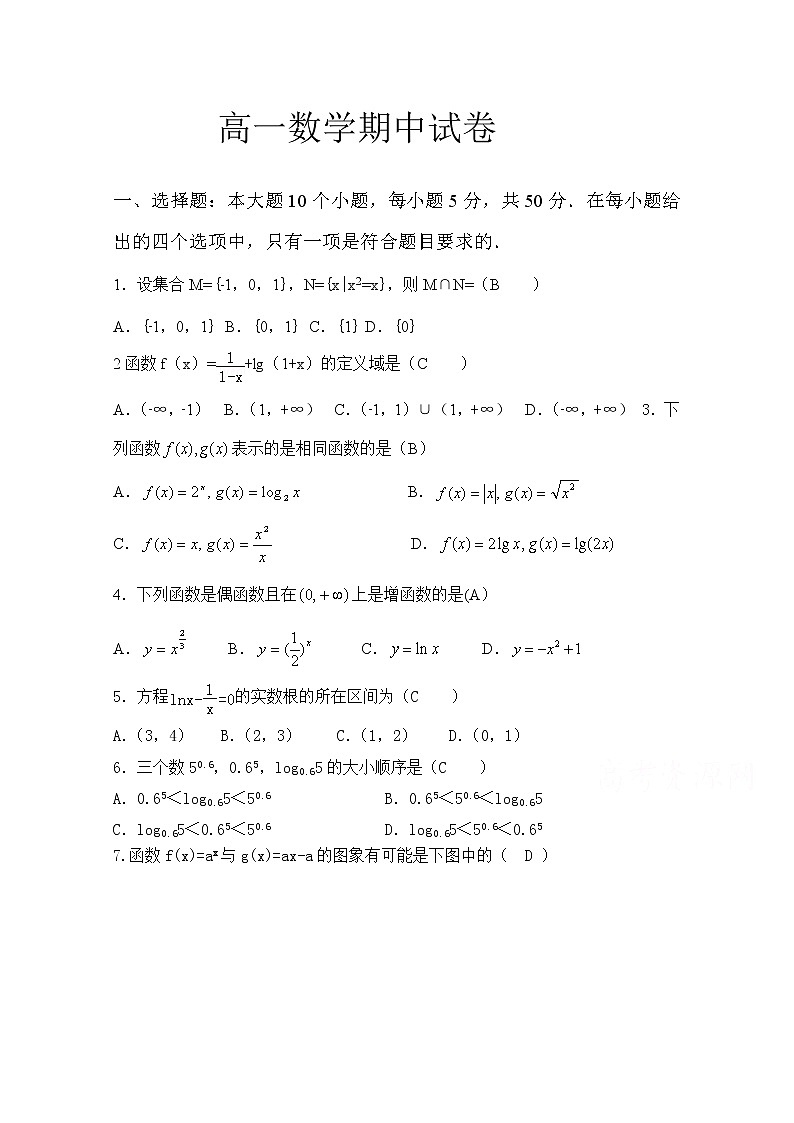 高一数学期中试卷
一、选择题：本大题 10 个小题，每小题 5 分，共 50 分．在每小题给
出的四个选项中，只有一项是符合题目要求的．
1．设集合 M={-1，0，1}，N={x|x²=x}，则 M∩N=（B　　）
A．{-1，0，1} B．{0，1} C．{1} D．{0}
2 函数 f（x）=1/(1-x)+lg（1+x）的定义域是（C　　）
A．（-∞，-1）　B．（1，+∞）　C．（-1，1）∪（1，+∞）　D．（-∞，+∞） 3．下
列函数 f(x),g(x) 表示的是相同函数的是（B）
A． f(x)=2ˣ, g(x)=log₂x　　B． f(x)=|x|, g(x)=√x²
C． f(x)=x, g(x)=x²/x　　D． f(x)=2lg x, g(x)=lg(2x)
4．下列函数是偶函数且在 (0,+∞) 上是增函数的是(A）
A． y=x^(2/3)　　B． y=(1/2)ˣ　　C． y=ln x　　D． y=−x²+1
5．方程lnx-1/x=0的实数根的所在区间为（C　　）
A．（3，4）　B．（2，3）　C．（1，2）　D．（0，1）
6．三个数 5^0.6，0.6⁵，log₀.₆5 的大小顺序是（C　　）
A．0.6⁵＜log₀.₆5＜5^0.6　　B．0.6⁵＜5^0.6＜log₀.₆5
C．log₀.₆5＜0.6⁵＜5^0.6　　D．log₀.₆5＜5^0.6＜0.6⁵
7.函数 f(x)=aˣ与 g(x)=ax-a 的图象有可能是下图中的（　D ）